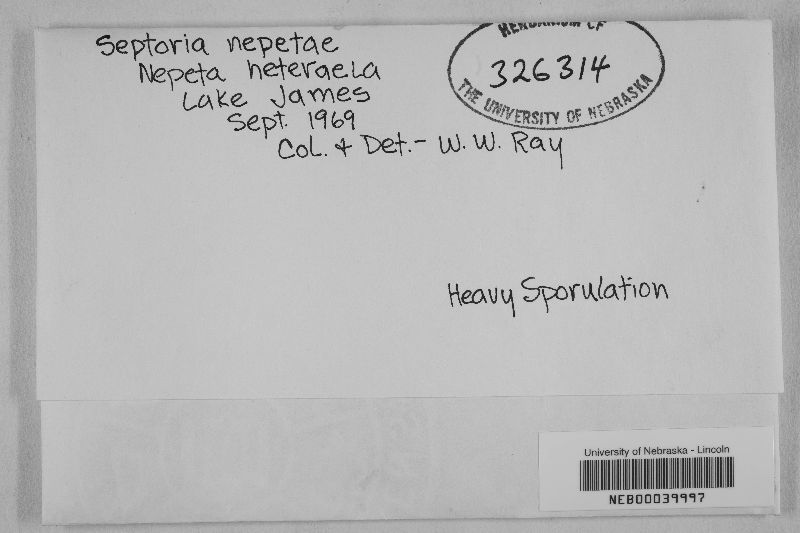 Septoria nepetae
Nepeta heteraela
Lake James
Sept. 1969
Col. & Det.- W. W. Ray
HERBARIUM OF
326314
THE UNIVERSITY OF NEBRASKA
Heavy Sporulation
University of Nebraska - Lincoln
NEB00039997